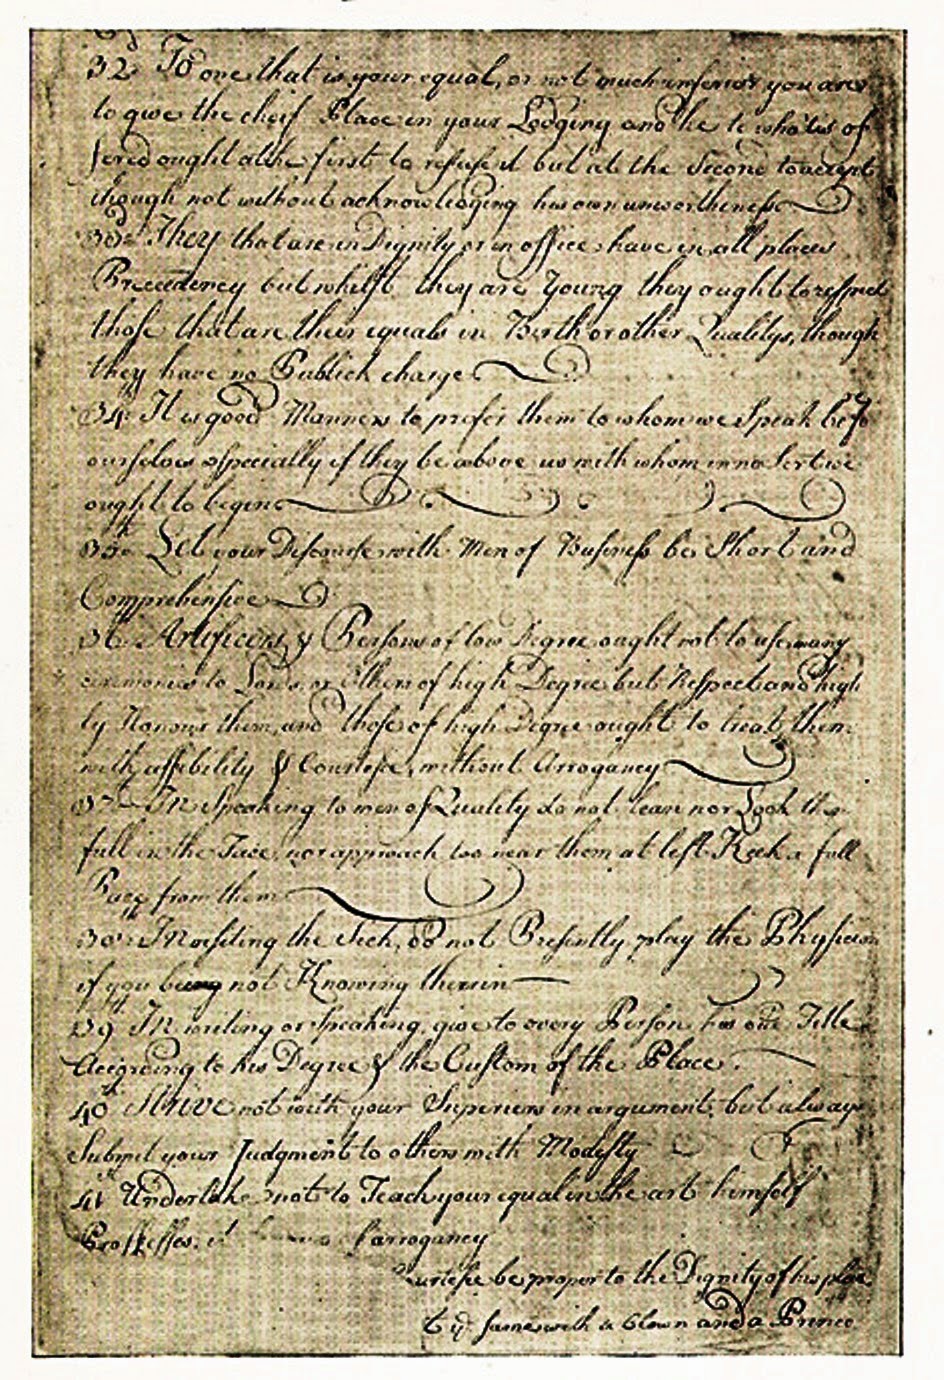 32d To one that is your equal, or not much inferior you are
to give the cheif Place in your Lodging and he to who 'tis of
fered ought at the first to refuse it but at the Second to accept
though not without acknowledging his own unworthiness
33d They that are in Dignity or in office have in all places
Preceedency but whilst they are Young they ought to respect
those that are their equals in Birth or other Qualitys, though
they have no Publick charge
34th It is good Manners to prefer them to whom we Speak befo
ourselves especially if they be above us with whom in no Sort we
ought to begin
35th Let your Discourse with Men of Business be Short and
Comprehensive
36th Artificers & Persons of low Degree ought not to use many
ceremonies to Lords, or Others of high Degree but Respect and high
ly Honour them, and those of high Degree ought to treat them
with affibility & Courtesie, without Arrogancy
37th In Speaking to men of Quality do not lean nor Look them
full in the Face, nor approach too near them at left Keep a full
Pace from them
38th In visiting the Sick, do not Presently play the Physicion
if you be not Knowing therein
39th In writing or Speaking, give to every Person his due Title
According to his Degree & the Custom of the Place.
40th Strive not with your Superiers in argument, but always
Submit your Judgment to others with Modesty
41st Undertake not to Teach your equal in the art himself
Proffesses; it arrogancy
urtesie be proper to the Dignity of his place
t ye same with a Clown and a Prince